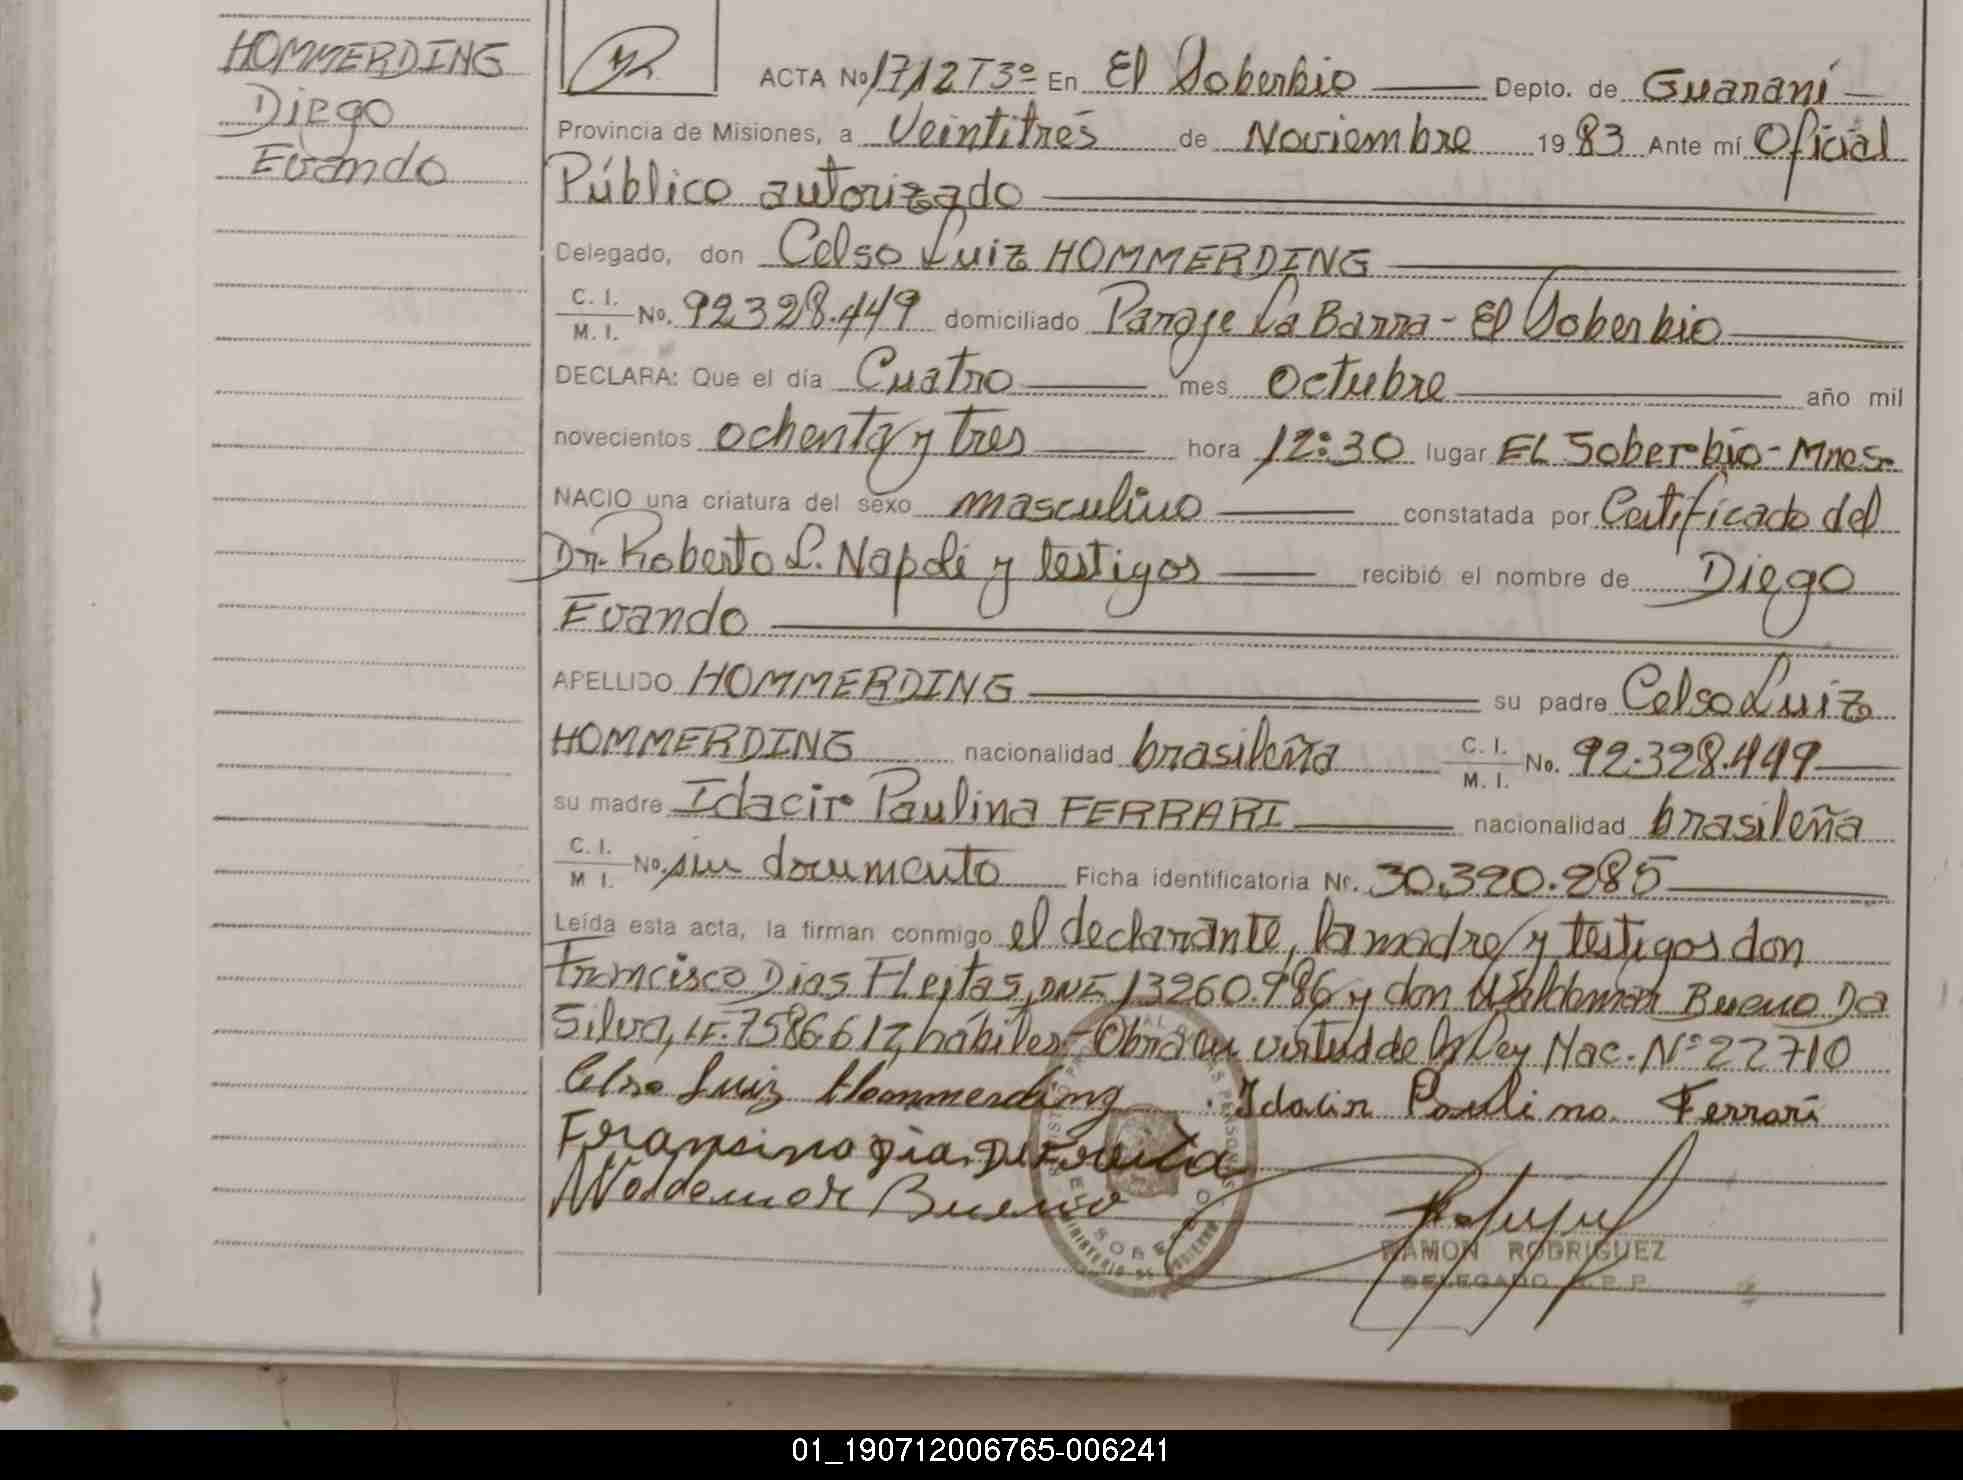 HOMMERDING
Diego
Evando
ACTA No 1712 T3º En El Soberbio Depto. de Guaraní
Provincia de Misiones, a Veintitrés de Noviembre 1983 Ante mí Oficial
Público autorizado
Delegado, don Celso Luiz HOMMERDING
C. I.
M. I. No. 92.328.449 domiciliado Paraje La Barra - El Soberbio
DECLARA: Que el día Cuatro mes octubre año mil
novecientos ochenta y tres hora 12:30 lugar EL Soberbio - Mnes.
NACIO una criatura del sexo masculino constatada por Certificado del
Dr. Roberto L. Napoli y testigos recibió el nombre de Diego
Evando
APELLIDO HOMMERDING su padre Celso Luiz
HOMMERDING nacionalidad brasileña C. I. M. I. No. 92.328.449
su madre Idacir Paulina FERRARI nacionalidad brasileña
C. I. M I. No. sin documento Ficha identificatoria Nr. 30.390.285
Leída esta acta, la firman conmigo el declarante, la madre y testigos don
Francisco Dias Fleitas, DNI 13260.986 y don Waldemar Bueno Da
Silva, LE. 7586.617, hábiles - Obra en virtud de la Ley Nac. Nº 22710
Celso Luiz Hommerding Idacir Paulina Ferrari
Waldemar Bueno
RAMON RODRIGUEZ
DELEGADO R. P. P.
01_190712006765-006241